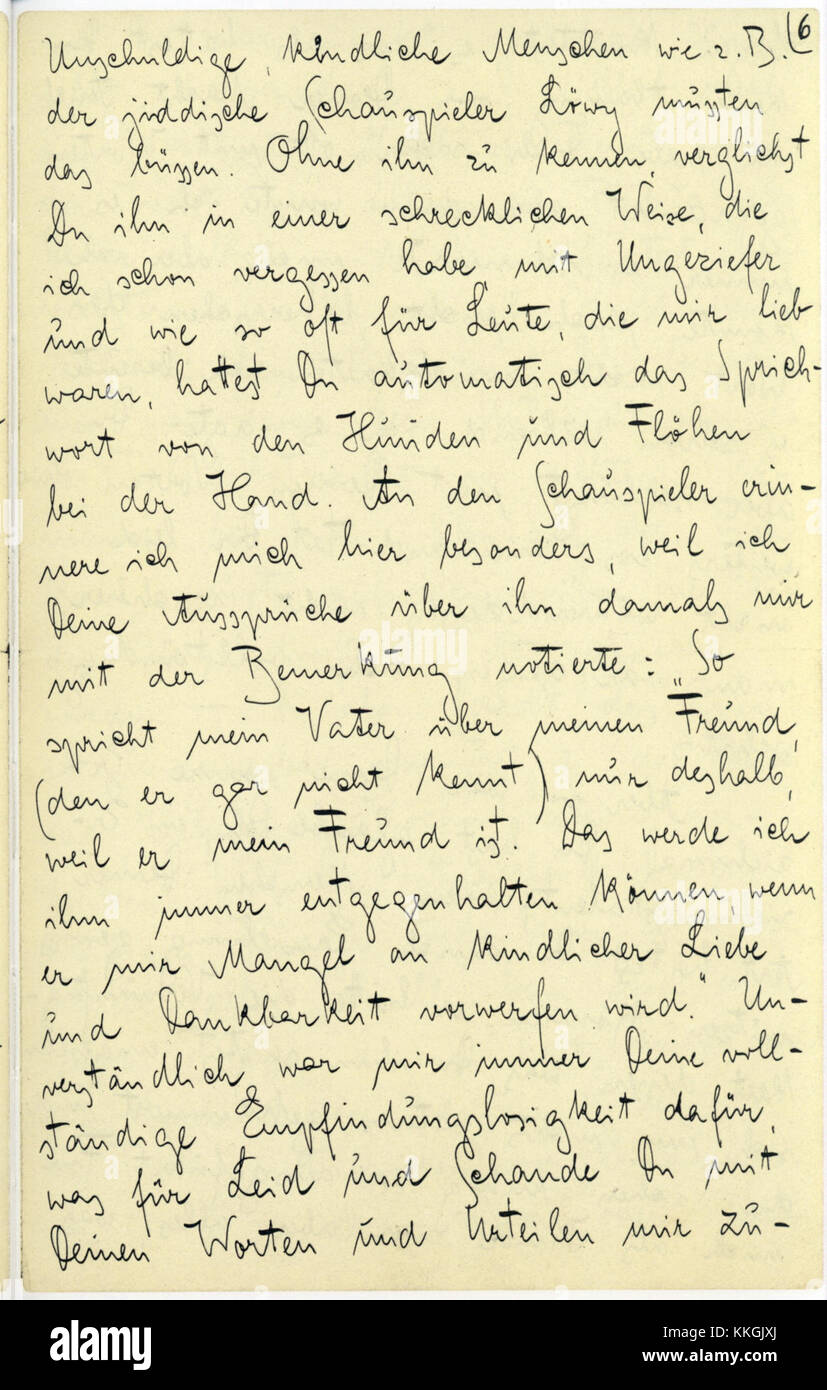 Unschuldige, kindliche Menschen wie z. B. (6
der jiddische Schauspieler Löwy mussten
das büssen. Ohne ihn zu kennen, verglichst
Du ihn in einer schrecklichen Weise, die
ich schon vergessen habe mit Ungeziefer
und wie so oft für Leute, die mir lieb
waren, hattest Du automatisch das Sprich-
wort von den Hunden und Flöhen
bei der Hand. An den Schauspieler erin-
nere ich mich hier besonders, weil ich
Deine Aussprüche über ihn damals mir
mit der Bemerkung notierte: „So
spricht mein Vater über meinen Freund,
(den er gar nicht kennt) nur deshalb,
weil er mein Freund ist. Das werde ich
ihm immer entgegenhalten können, wenn
er mir Mangel an kindlicher Liebe
und Dankbarkeit vorwerfen wird." Un-
verständlich war mir immer Deine voll-
ständige Empfindungslosigkeit dafür,
was für Leid und Schande Du mit
Deinen Worten und Urteilen mir zu-
alamy
Image ID: KKGJXJ
www.alamy.com